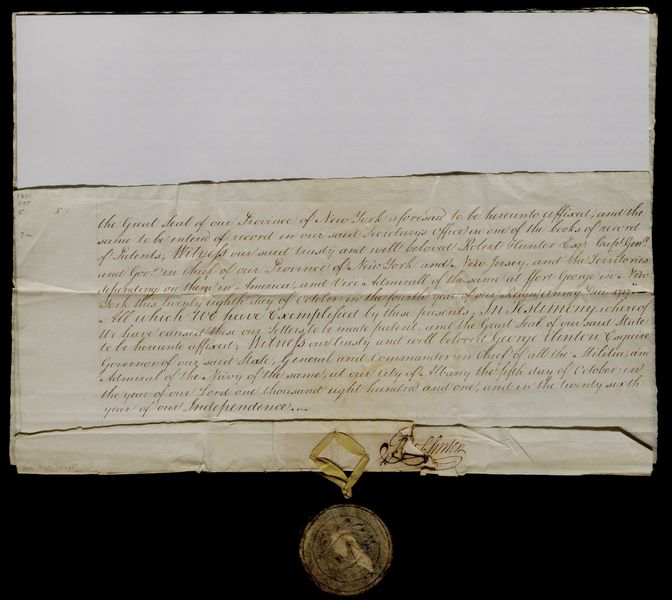 1801
Oct
5
5.
the Great Seal of our Province of New York aforesaid to be hereunto affixed, and the
same to be enterd of record in our said Secretarys office in one of the books of record
of Patents; Witness our said trusty and well beloved Robert Hunter Esqr Capt Genll
and Govr in Chief of our Province of New York and New Jersey, and the Territories
depending on them in America, and Vice Admirall of the same at ffort George in New
York this twenty eighth day of October in the fourth year of our Reign Annoq Dm 1717
All which We have Exemplified by these presents, In Testimony whereof
We have caused these our Letters to be made patent, and the Great Seal of our said State
to be hereunto affixed; Witness our trusty and well beloved George Clinton Esquire
Governor of our said State, General and Commander in Chief of all the Militia, and
Admiral of the Navy of the same, at our City of Albany the fifth day of October in
the year of our Lord one thousand eight hundred and one, and in the twenty sixth
year of our Independence